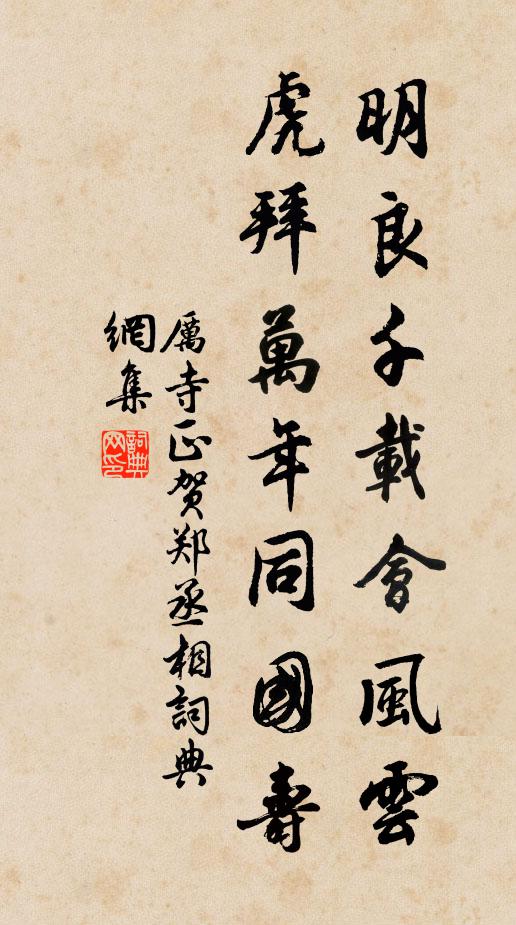 明良千載會風雲
虎拜萬年同國壽
厲寺正賀郑丞相詞典
網集
詞典
网印